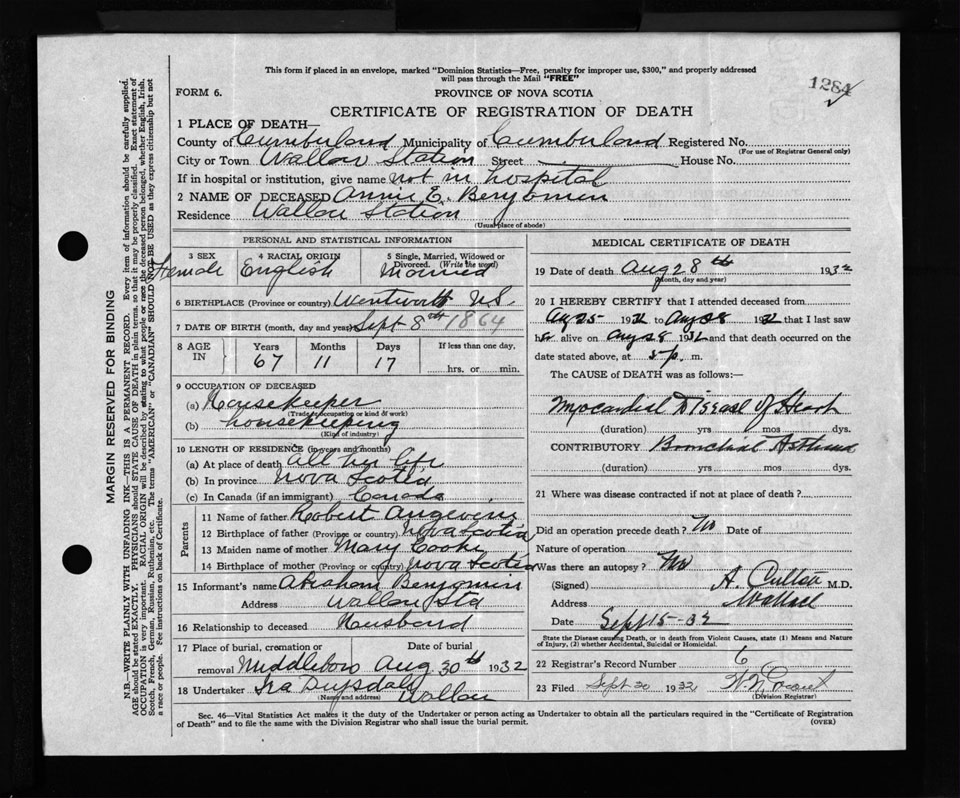 This form if placed in an envelope, marked "Dominion Statistics—Free, penalty for improper use, $300," and properly addressed
will pass through the Mail "FREE"
1284
FORM 6.
PROVINCE OF NOVA SCOTIA
CERTIFICATE OF REGISTRATION OF DEATH
1 PLACE OF DEATH—
County of Cumberland Municipality of Cumberland Registered No.
(For use of Registrar General only)
City or Town Wallace Station Street House No.
If in hospital or institution, give name not in hospital
2 NAME OF DECEASED Annie E. Benjamin
Residence Wallace Station
(Usual place of abode)
PERSONAL AND STATISTICAL INFORMATION
3 SEX Female
4 RACIAL ORIGIN English
5 Single, Married, Widowed or Divorced. (Write the word) Married
6 BIRTHPLACE (Province or country) Wentworth N.S.
7 DATE OF BIRTH (month, day and year) Sept 8th 1864
8 AGE IN Years 67 Months 11 Days 17 If less than one day, hrs. or min.
9 OCCUPATION OF DECEASED
(a) Housekeeper
(Trade, occupation or kind of work)
(b) housekeeping
(Kind of industry)
10 LENGTH OF RESIDENCE (in years and months)
(a) At place of death all her life
(b) In province Nova Scotia
(c) In Canada (if an immigrant) Canada
Parents
11 Name of father Robert Angevine
12 Birthplace of father (Province or country) Nova Scotia
13 Maiden name of mother Mary Cooke
14 Birthplace of mother (Province or country) Nova Scotia
15 Informant's name Abraham Benjamin
Address Wallace Sta
16 Relationship to deceased Husband
17 Place of burial, cremation or removal Middleboro Date of burial Aug. 30th 1932
18 Undertaker Ira Wallace
(Name and address)
MEDICAL CERTIFICATE OF DEATH
19 Date of death Aug 28th 1932
(Month, day and year)
20 I HEREBY CERTIFY that I attended deceased from
Aug 25 1932 to Aug 28 1932 that I last saw
her alive on Aug 28 1932 and that death occurred on the
date stated above, at 5 p. m.
The CAUSE of DEATH was as follows:—
Myocardial Disease of Heart
(duration) yrs mos dys.
CONTRIBUTORY Bronchial Asthma
(duration) yrs mos dys.
21 Where was disease contracted if not at place of death?
Did an operation precede death? No Date of
Nature of operation
Was there an autopsy? No
(Signed) A. M.D.
Address Wallace
Date Sept 15-32
State the Disease causing Death, or in death from Violent Causes, state (1) Means and Nature
of Injury, (2) whether Accidental, Suicidal or Homicidal.
22 Registrar's Record Number 6
23 Filed Sept 20 1932
(Division Registrar)
Sec. 46—Vital Statistics Act makes it the duty of the Undertaker or person acting as Undertaker to obtain all the particulars required in the "Certificate of Registration
of Death" and to file the same with the Division Registrar who shall issue the burial permit.
(OVER)
MARGIN RESERVED FOR BINDING
N.B.—WRITE PLAINLY WITH UNFADING INK—THIS IS A PERMANENT RECORD. Every item of information should be carefully supplied.
AGE should be stated EXACTLY. PHYSICIANS should STATE CAUSE OF DEATH in plain terms, so that it may be properly classified. Exact statement of
OCCUPATION is very important. RACIAL ORIGIN will be described by stating to what people or race the deceased person belonged, whether English, Irish,
Scotch, French, German, Russian, Ruthenian, etc. The terms "AMERICAN" or "CANADIAN" SHOULD NOT BE USED as they express citizenship but not
a race or people. See instructions on back of Certificate.